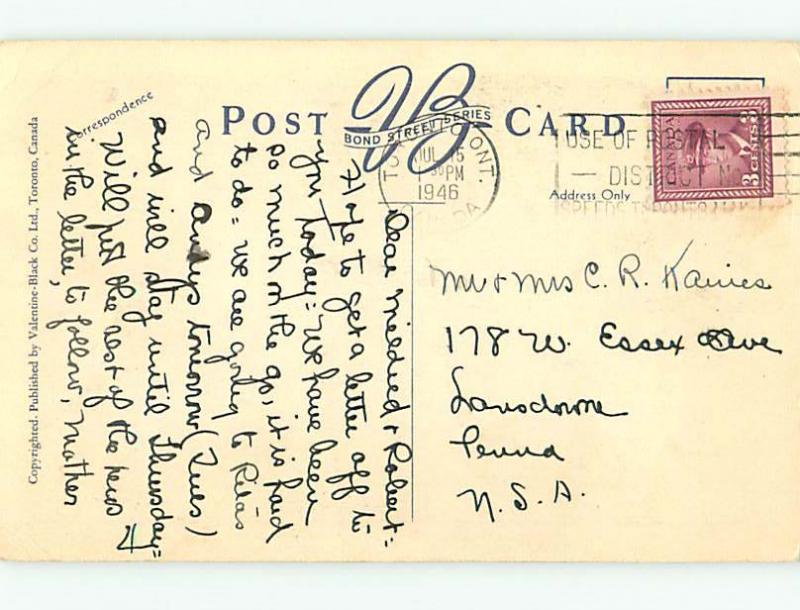 Correspondence
POST CARD
VB
BOND STREET SERIES
Address Only
ONT.
JUL 15
PM
1946
USE OF POSTAL
DISTRICT No
SPEEDS
CANADA
3 CENTS 3
Copyrighted. Published by Valentine-Black Co. Ltd., Toronto, Canada
Dear Mildred & Robert:
Hope to get a letter off to
you today = We have been
so much on the go, it is hard
to do = we are going to Rita's
and Andys tomorrow (Tues)
and will stay until Thursday =
Will put the rest of the news
in the letter, to follow, Mother
Mr & Mrs C. R.
178 W. Essex Ave
Lansdowne
Penna
U.S.A.